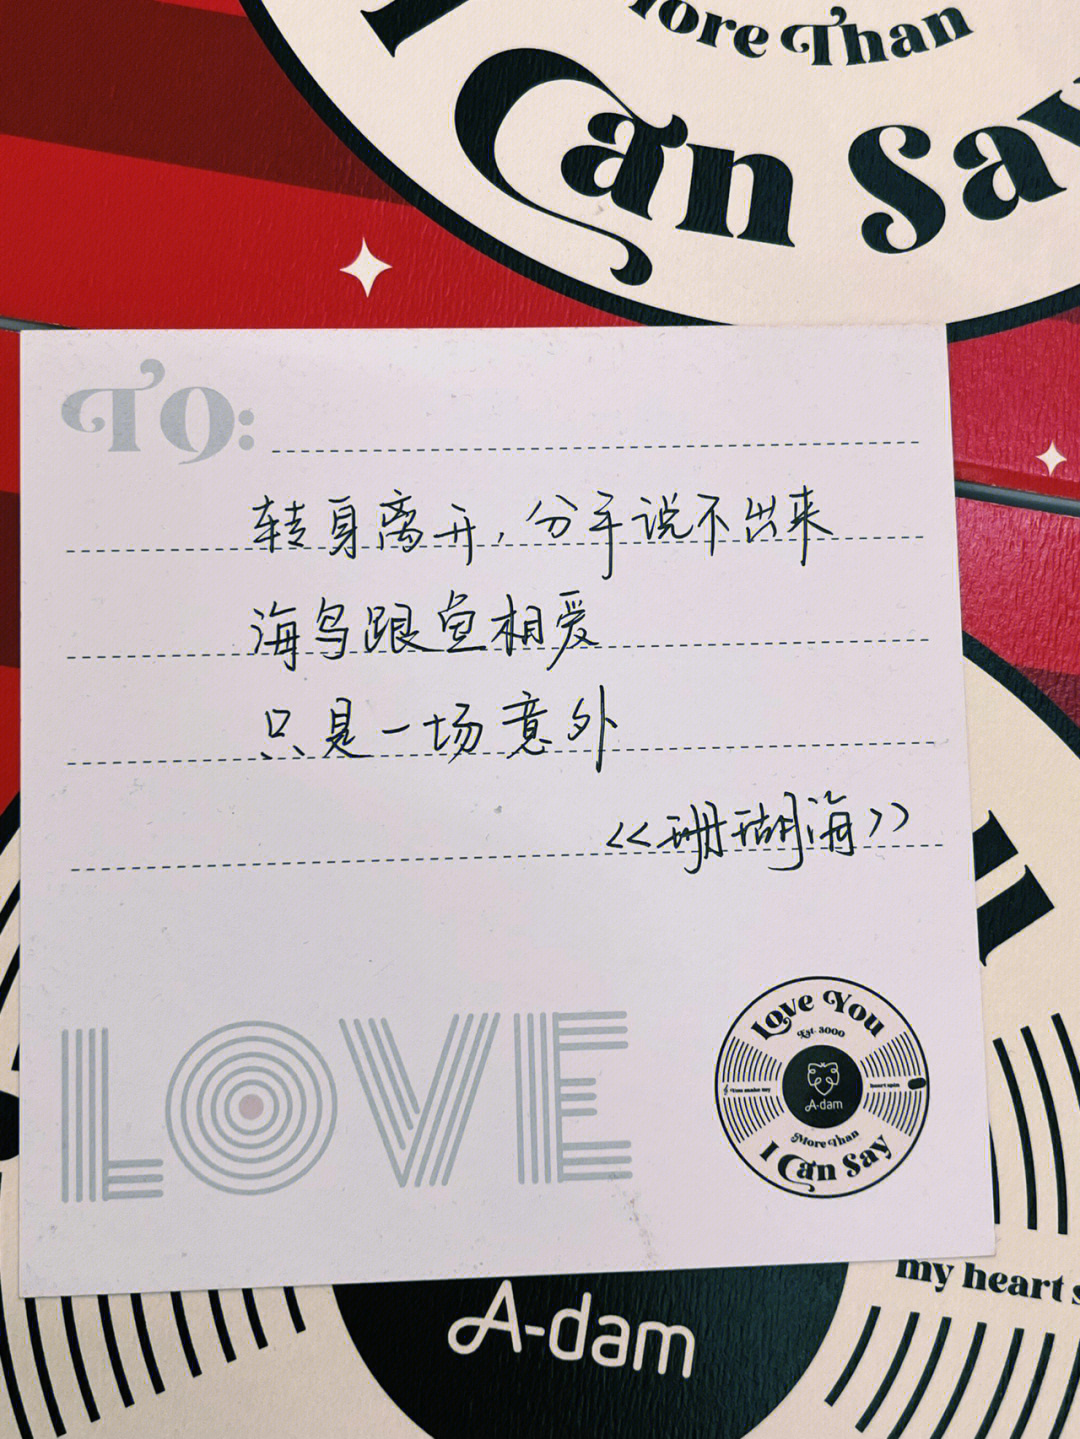 More Than
I Can Say
TO:
转身离开,分手说不出来
海鸟跟鱼相爱
只是一场意外
《珊瑚海》
LOVE
Love You
Est. 3000
You make my
heart spin
A-dam
More Than
I Can Say
my heart s
A-dam